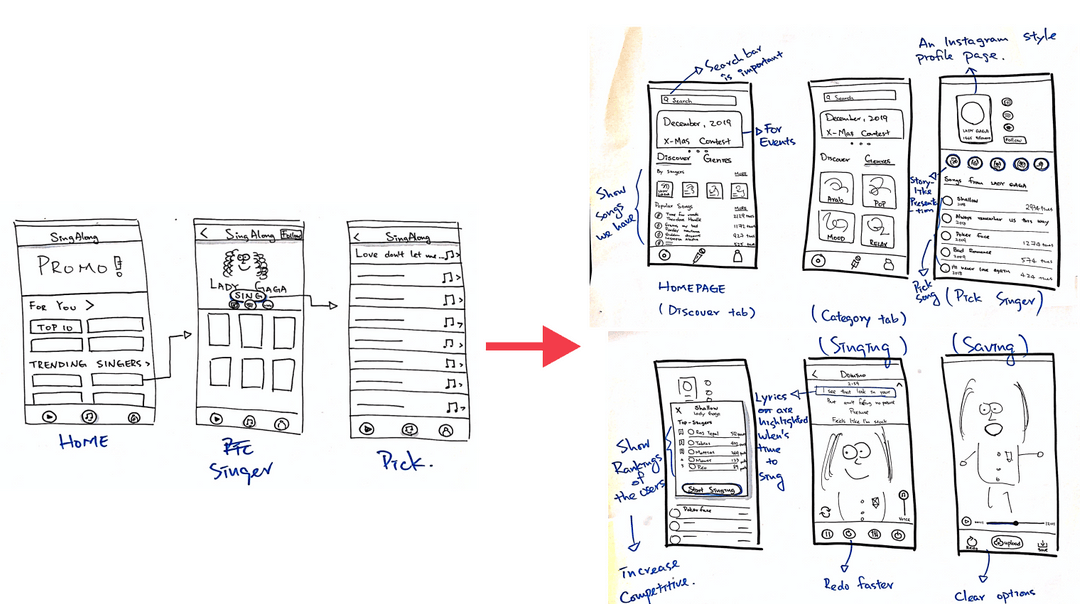 SingAlong
PROMO!
FOR YOU >
TOP 10
TRENDING SINGERS >
HOME
< SingAlong Follow
LADY GAGA
SING
Singer
< SingAlong
Love don't let me...
Pick.
Search bar
is important
Search
December, 2019
X-Mas Contest
For
Events
Discover Genres
By Singers More
Show
Songs
we have
Popular Songs More
HOMEPAGE
(Discover tab)
Search
December, 2019
X-Mas Contest
Discover Genres
Arab
Pop
MOOD
RELAX
(Category tab)
An Instagram style
profile page.
LADY GAGA
Follow
Story-
like
Presenta-
tion
Songs from LADY GAGA
Shallow
2018
Always remember us this way
Poker Face
2009
Bad Romance
2009
Pick
song
(Pick Singer)
X Shallow
Lady Gaga
Top-Singers
Start Singing
Poker Face
Show
Rankings
of
the users
Increase
Competitive.
(Singing)
< Domino
Lyrics
are
highlighted
when's
time
to
sing
Feels like I'm
Redo faster
(Saving)
Redo
upload
Save
Clear options